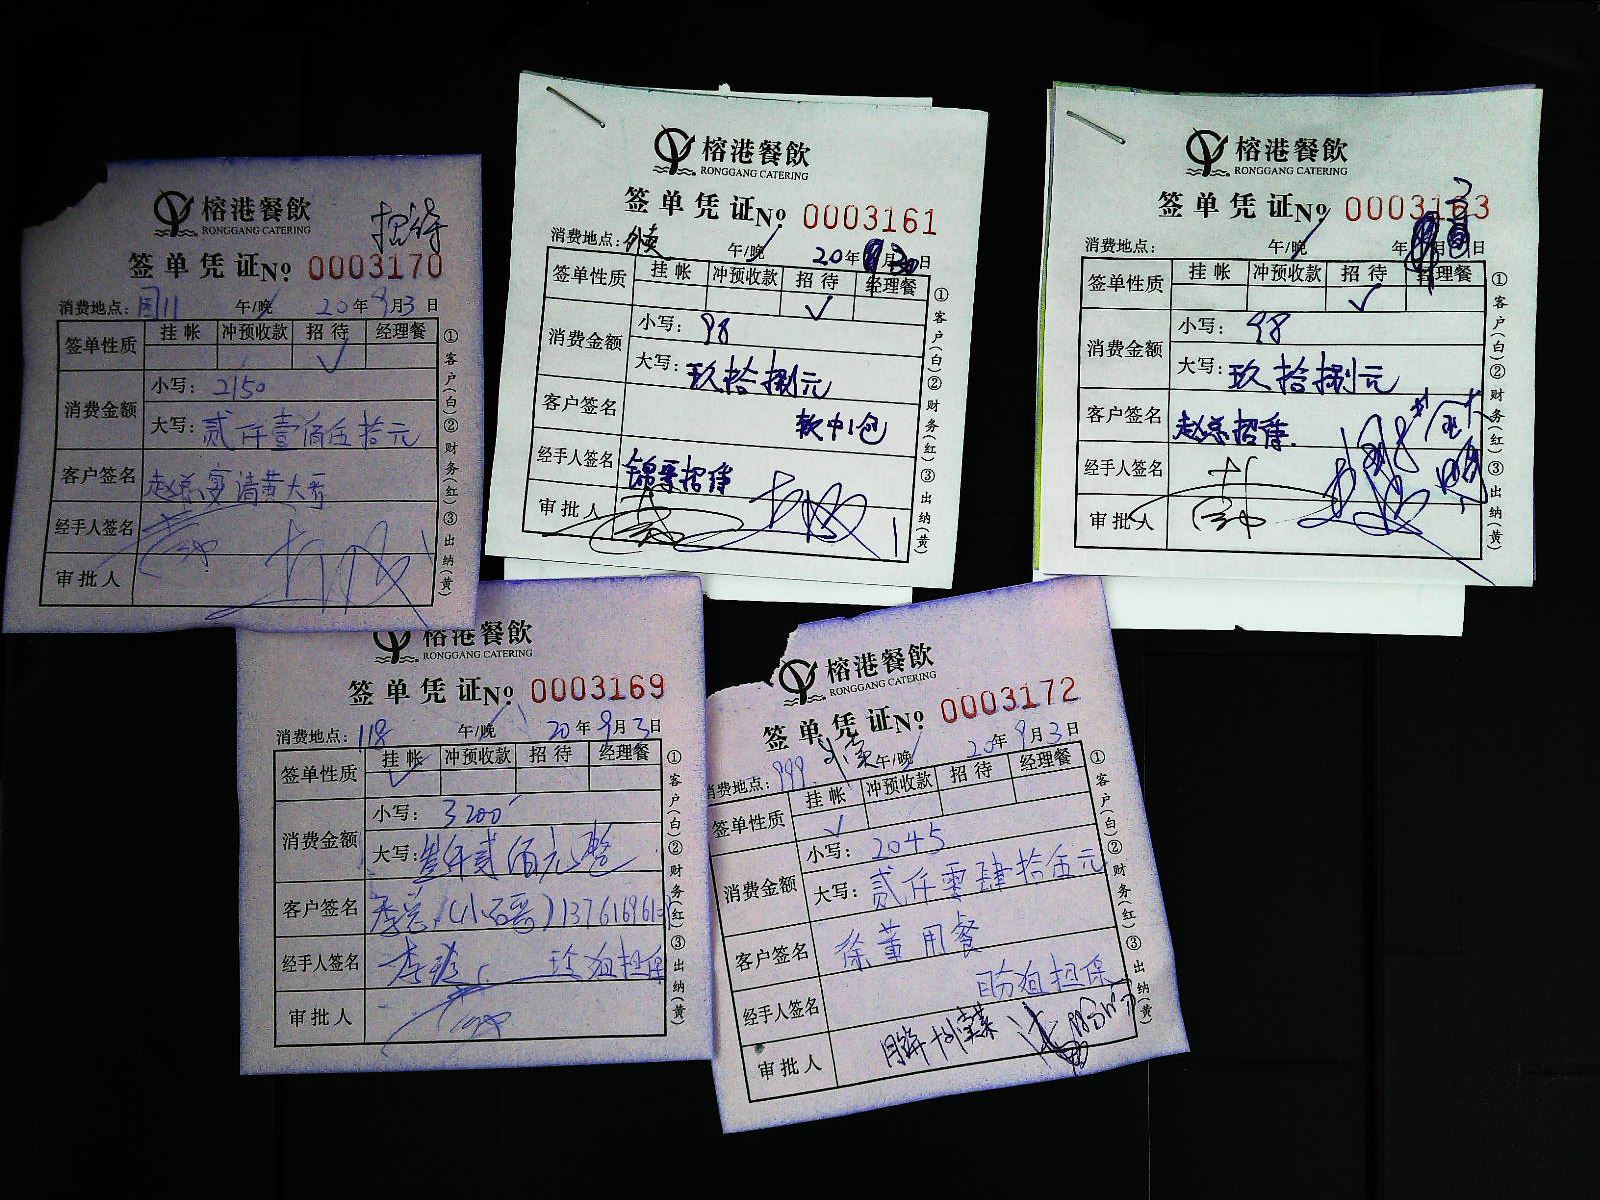 榕港餐飲
RONGGANG CATERING
招待
签单凭证№ 0003170
消费地点: 午/晚 20年9月3日
签单性质 挂帐 冲预收款 招待 经理餐
√
消费金额 小写: 2150
大写: 贰仟壹佰伍拾元
客户签名 赵总宴请黄大哥
经手人签名
审批人
①客户(白)②财务(红)③出纳(黄)
榕港餐飲
RONGGANG CATERING
签单凭证№ 0003161
消费地点: 外卖 午/晚 20年 月30日
签单性质 挂帐 冲预收款 招待 经理餐
√
消费金额 小写: 98
大写: 玖拾捌元
客户签名 软中1包
经手人签名 锦哥招待
审批人
①客户(白)②财务(红)③出纳(黄)
榕港餐飲
RONGGANG CATERING
签单凭证№ 0003163
消费地点: 午/晚 年 月 日
签单性质 挂帐 冲预收款 招待 经理餐
√
消费金额 小写: 98
大写: 玖拾捌元
客户签名 赵总招待
经手人签名
审批人
①客户(白)②财务(红)③出纳(黄)
榕港餐飲
RONGGANG CATERING
签单凭证№ 0003169
消费地点: 118 午/晚 20年9月3日
签单性质 挂帐 冲预收款 招待 经理餐
√
消费金额 小写: 3200
大写: 叁仟贰佰元整
客户签名 李总
经手人签名 担保
审批人
①客户(白)②财务(红)③出纳(黄)
榕港餐飲
RONGGANG CATERING
签单凭证№ 0003172
消费地点: 999 外卖 午/晚 20年9月3日
签单性质 挂帐 冲预收款 招待 经理餐
√
消费金额 小写: 2045
大写: 贰仟零肆拾伍元
客户签名 徐董用餐
经手人签名 担保
审批人
①客户(白)②财务(红)③出纳(黄)